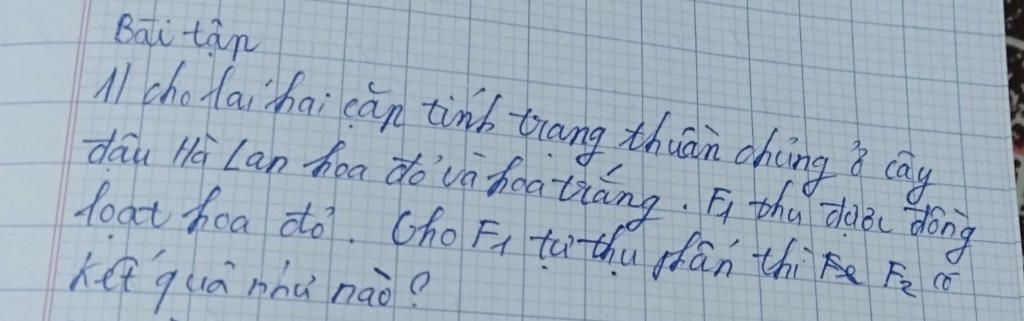 Bài tập
1) cho lai hai cặp tính trạng thuần chủng ở cây
đậu Hà Lan hoa đỏ và hoa trắng. F1 thu được đồng
loạt hoa đỏ. Cho F1 tự thụ phấn thì F2 có
kết quả như nào?